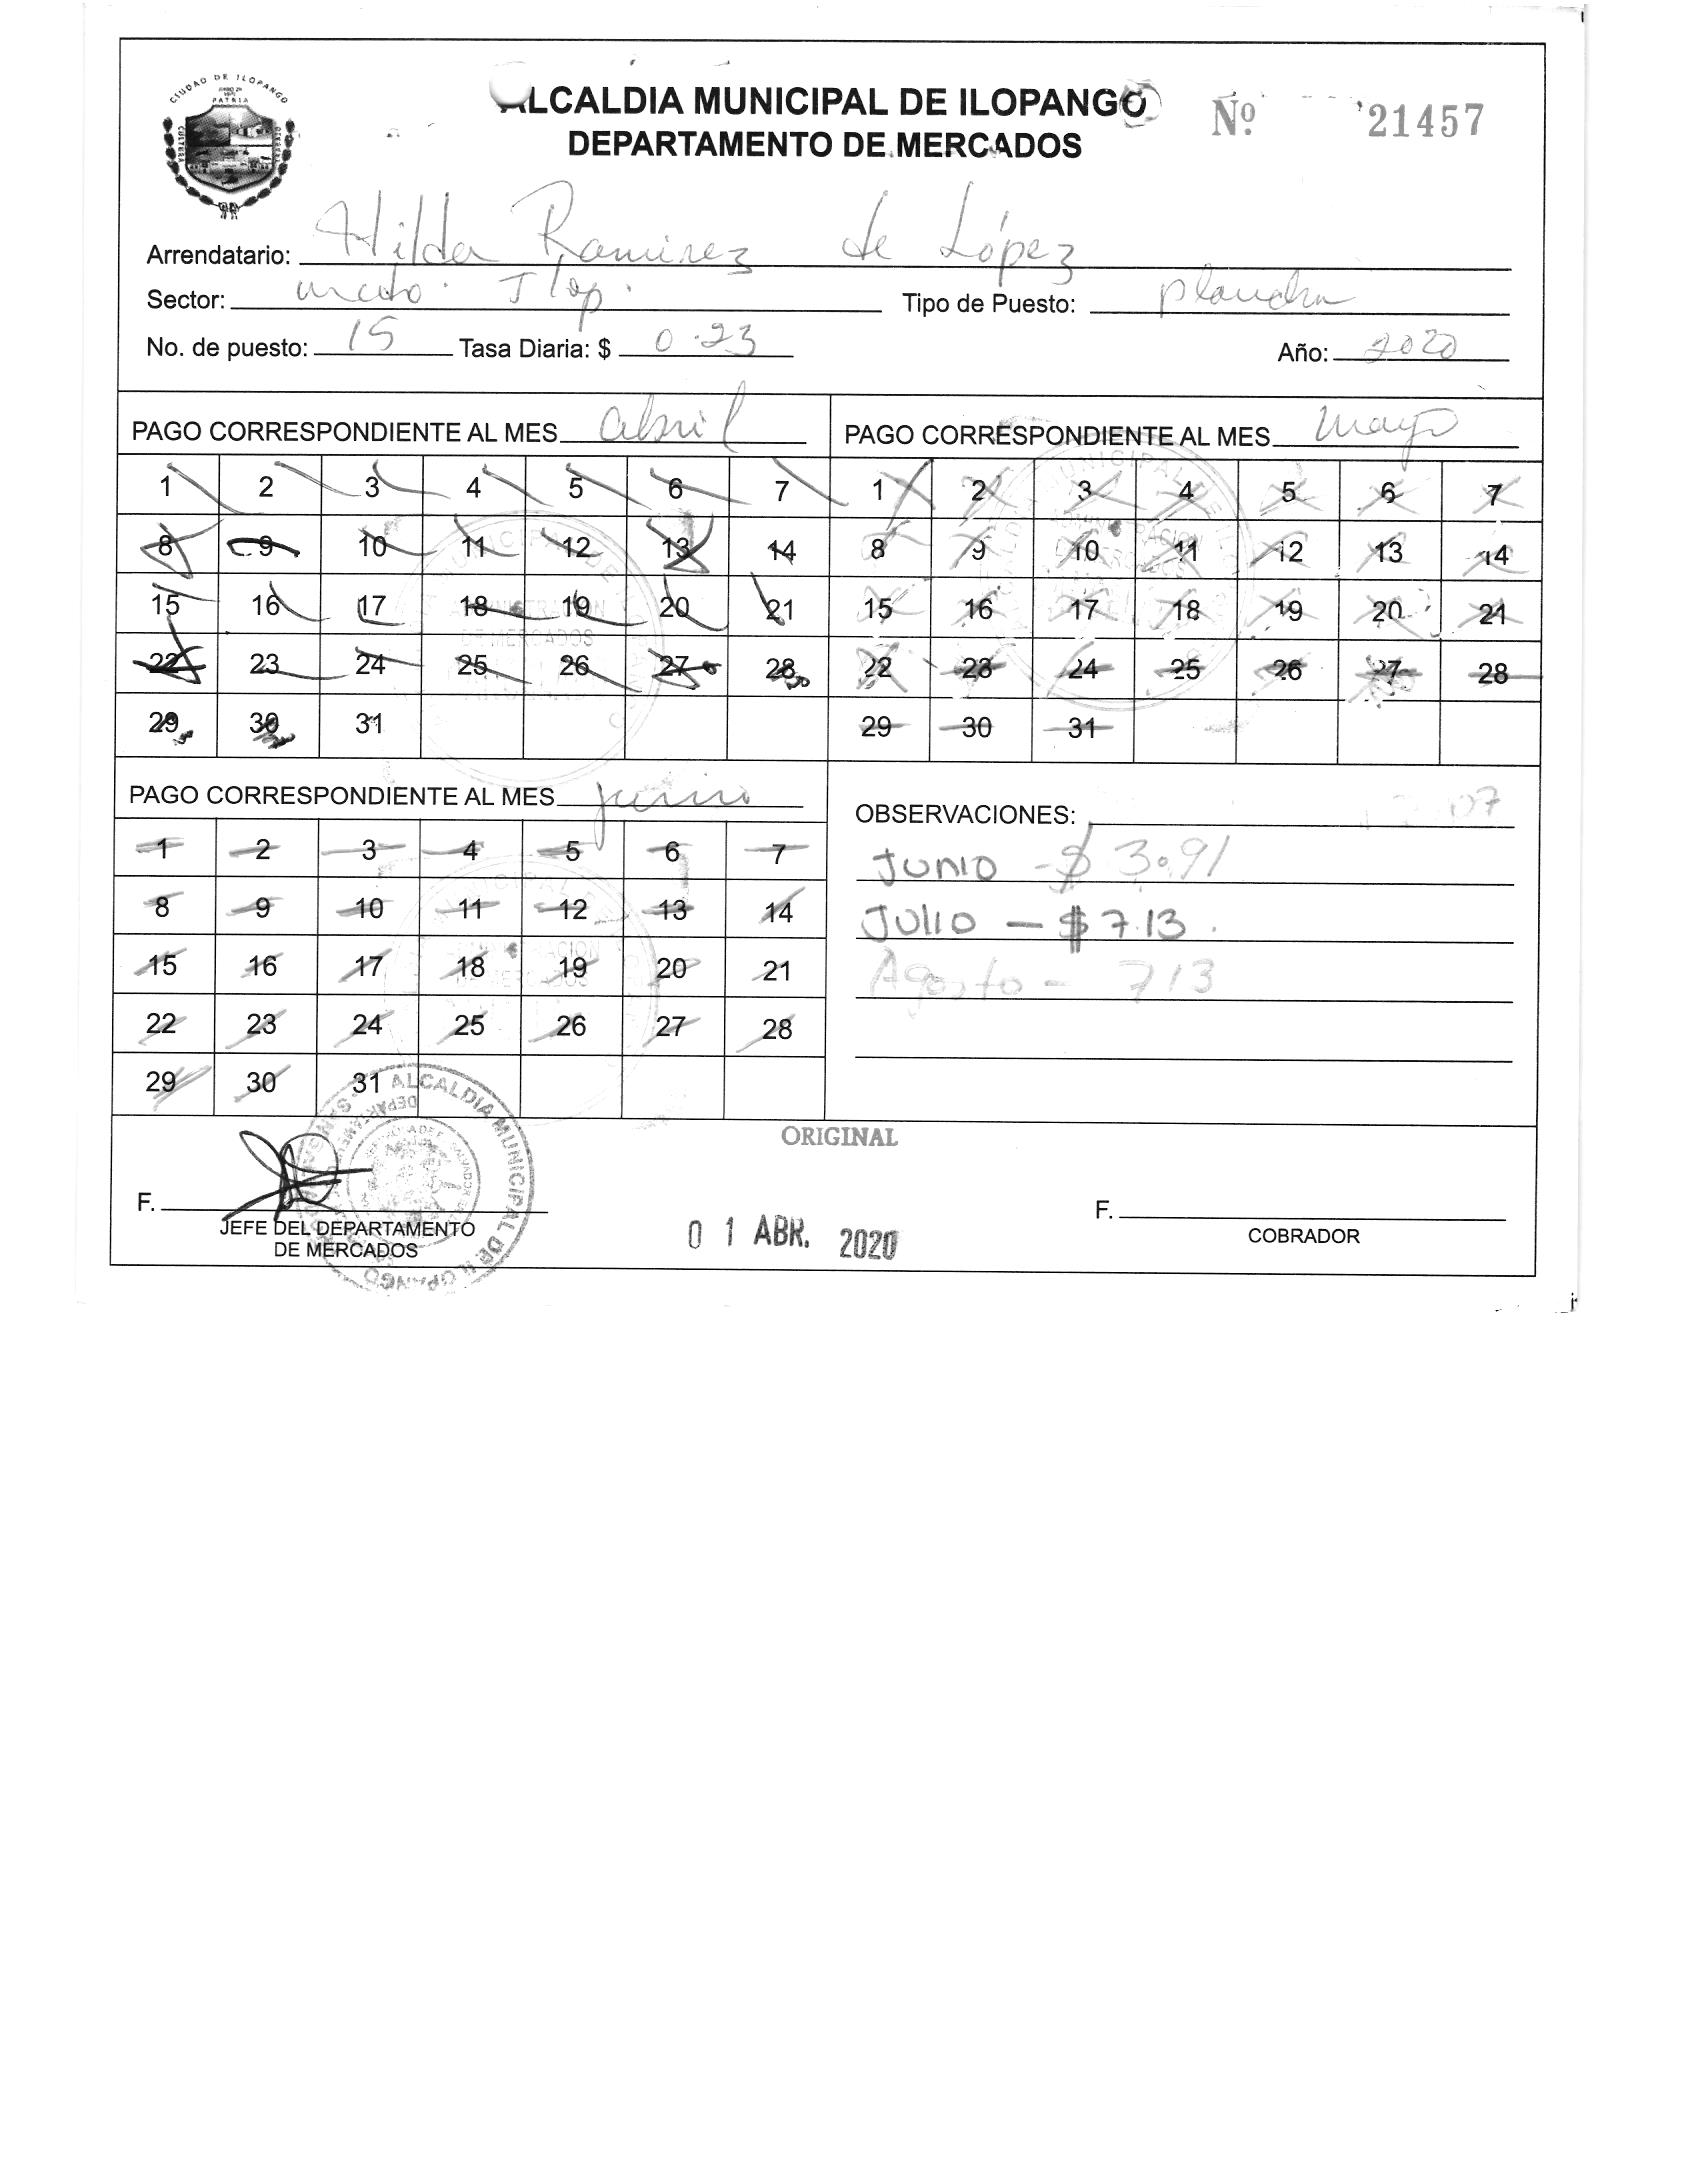 CIUDAD DE ILOPANGO
PATRIA
CULTURA
ALCALDIA MUNICIPAL DE ILOPANGO
Nº 21457
DEPARTAMENTO DE MERCADOS
Arrendatario: Hilda Ramirez de López
Sector: mcdo. Ilop. Tipo de Puesto: plancha
No. de puesto: 15 Tasa Diaria: $ 0.23 Año: 2020
PAGO CORRESPONDIENTE AL MES abril
1 2 3 4 5 6 7
8 9 10 11 12 13 14
15 16 17 18 19 20 21
22 23 24 25 26 27 28
29 30 31
PAGO CORRESPONDIENTE AL MES mayo
1 2 3 4 5 6 7
8 9 10 11 12 13 14
15 16 17 18 19 20 21
22 23 24 25 26 27 28
29 30 31
PAGO CORRESPONDIENTE AL MES junio
1 2 3 4 5 6 7
8 9 10 11 12 13 14
15 16 17 18 19 20 21
22 23 24 25 26 27 28
29 30 31
OBSERVACIONES: 07
JUNIO - $ 3.91
JULIO - $ 7.13.
Agosto - 713
ORIGINAL
ALCALDIA MUNICIPAL DE ILOPANGO
F.
JEFE DEL DEPARTAMENTO
DE MERCADOS
01 ABR. 2020
F.
COBRADOR